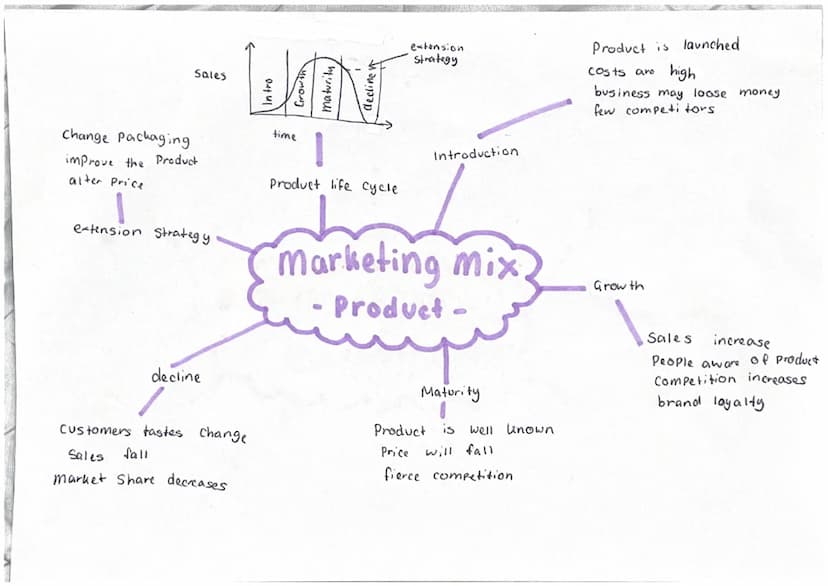 extension
strategy
Sales
Intro
Growth
Maturity
decline
time
Product life cycle
Product is launched
costs are high
business may loose money
few competitors
Introduction
Change Packaging
improve the Product
alter Price
extension strategy
Marketing Mix
- Product -
Growth
Sales increase
People aware of Product
Competition increases
brand loyalty
decline
Customers tastes change
Sales fall
market share decreases
Maturity
Product is well known
Price will fall
fierce competition